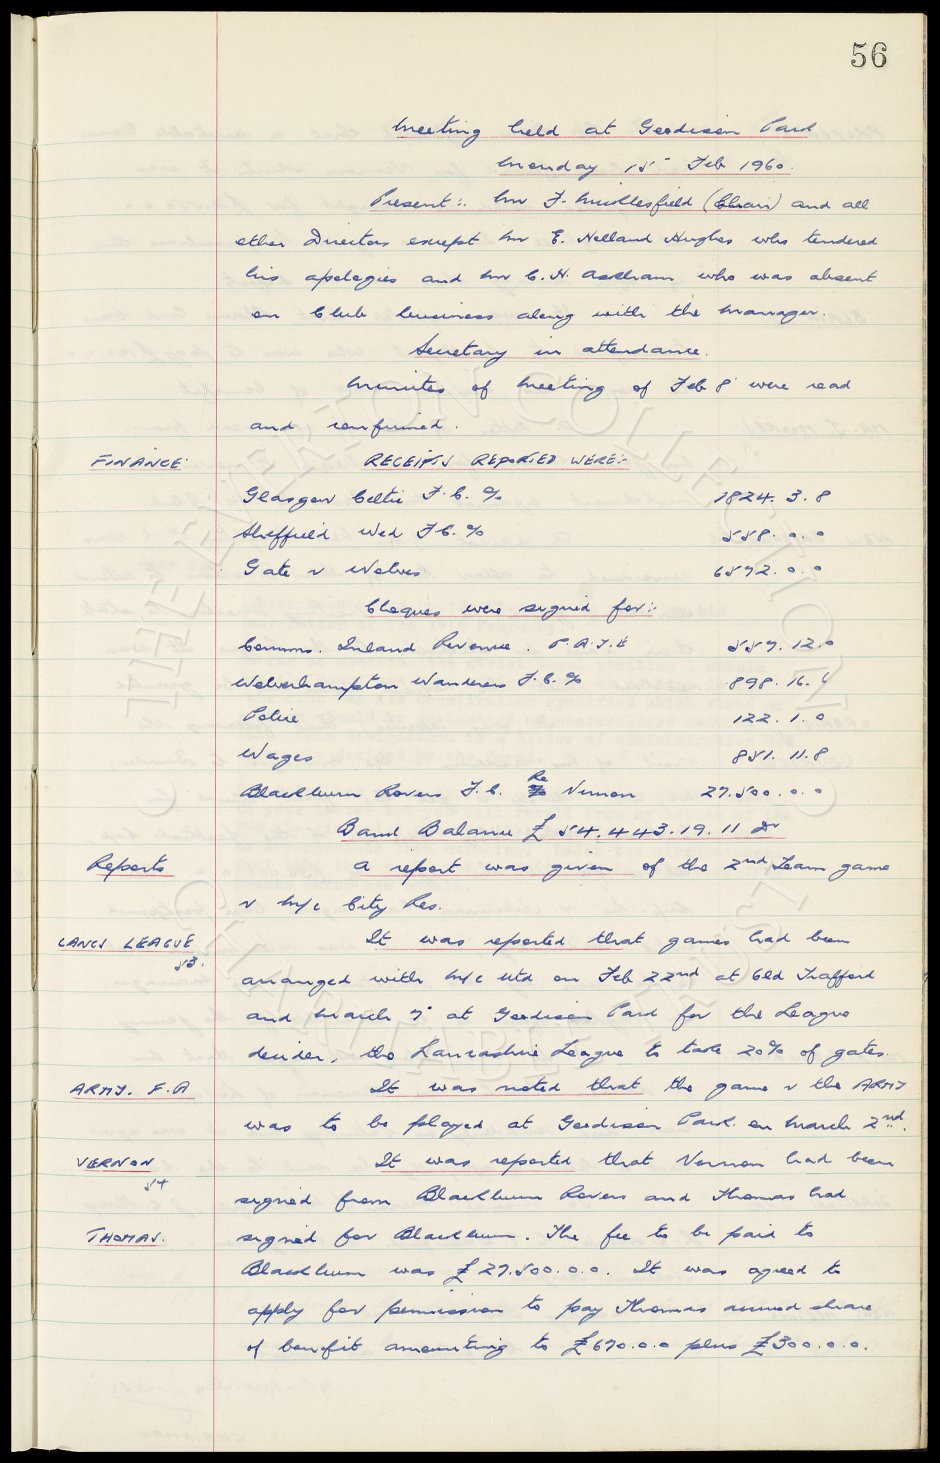 56
Meeting held at Goodison Park
Monday 15th Feb 1960.
Present:- Mr F. Micklesfield (Chair) and all
other Directors except Mr E. Holland Hughes who tendered
his apologies and Mr C. H. Askham who was absent
on Club business along with the Manager.
Secretary in attendance.
Minutes of Meeting of Feb 8 were read
and confirmed.
FINANCE
RECEIPTS REPORTED WERE:-
Glasgow Celtic F.C. % 1824. 3. 8
Sheffield Wed F.C. % 558. 0. 0
Gate v Wolves 6572. 0. 0
Cheques were signed for:-
Comms. Inland Revenue. P.A.Y.E 557. 12. 0
Wolverhampton Wanderers F.C. % 898. 16. 6
Police 122. 1. 0
Wages 851. 11. 8
Blackburn Rovers F.C. Re Vernon 27.500. 0. 0
Bank Balance £54.443.19.11 Dr
Reports
A report was given of the 2nd Team game
v M/c City Res.
LANCS LEAGUE
53.
It was reported that games had been
arranged with M/c Utd on Feb 22nd at Old Trafford
and March 7th at Goodison Park for the League
decider, the Lancashire League to take 20% of gates.
ARMY. F.A
It was noted that the game v the ARMY
was to be played at Goodison Park on March 2nd.
VERNON
54
It was reported that Vernon had been
signed from Blackburn Rovers and Thomas had
THOMAS.
signed for Blackburn. The fee to be paid to
Blackburn was £27.500.0.0. It was agreed to
apply for permission to pay Thomas accrued share
of benefit amounting to £670.0.0 plus £300.0.0.
THE EVERTON COLLECTION
CHARITABLE TRUST